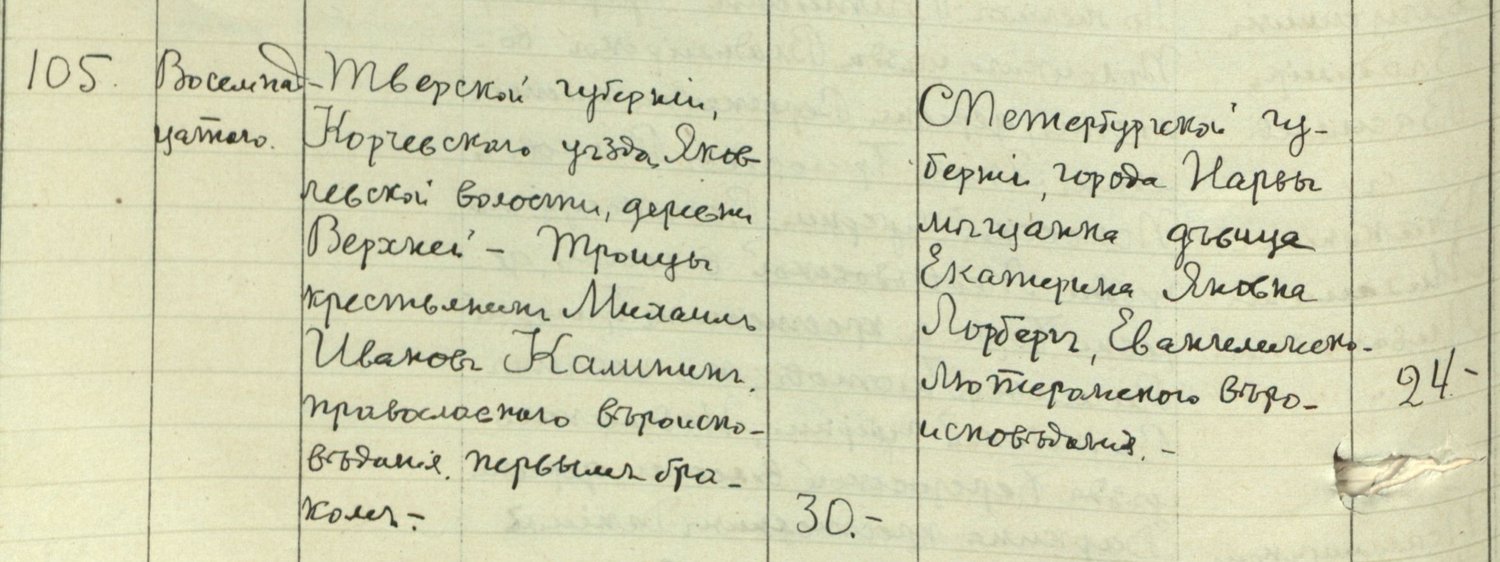 105.
Восемнад-
цатого.
Тверской губернiи,
Корчевского уѣзда, Яков-
левской волости, деревни
Верхней - Троицы
крестьянинъ Михаилъ
Ивановъ Калининъ,
православнаго вѣроиспо-
вѣданiя, первымъ бра-
комъ.-
30.-
СПетербургской гу-
бернiи, города Нарвы
мѣщанка дѣвица
Екатерина Яковна
Лорбергъ, Евангелическо-
Лютеранскаго вѣро-
исповѣданiя.-
24.-